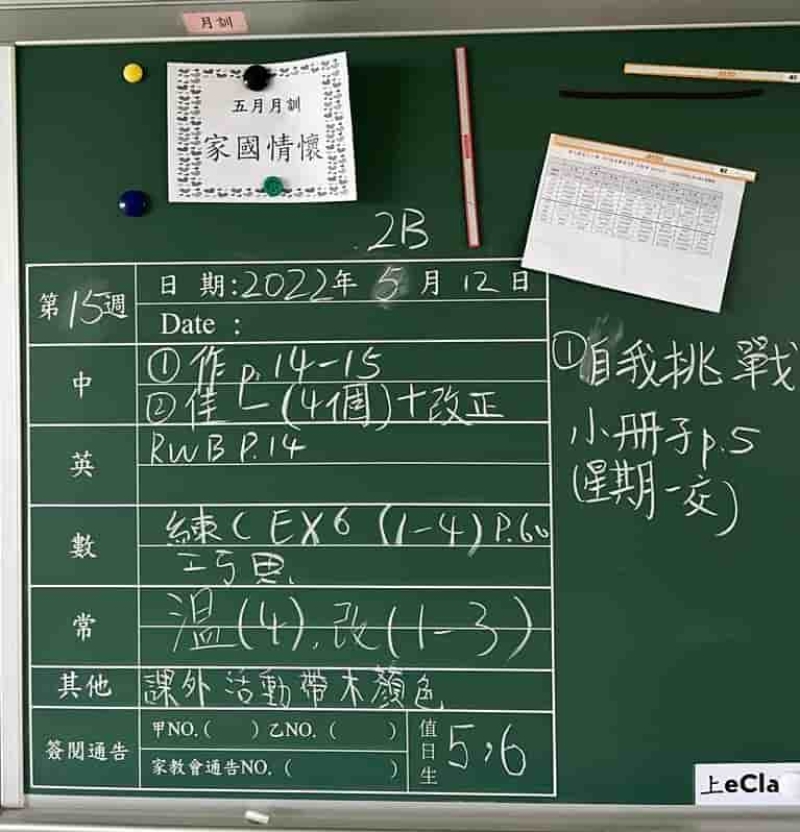 月訓
五月月訓
家國情懷
2B
第15週
日 期:2022年 5 月 12 日
Date :
中
① 作 p.14-15
② 佳乚(4個)+改正
英
RWB P.14
數
練C EX6 (1-4) P.60
工巧思
常
溫(4),改(1-3)
其他
課外活動帶木顏色
簽閱通告
甲NO.( ) 乙NO.( )
家教會通告NO.( )
值日生
5,6
① 自我挑戰
小冊子p.5
(星期一交)
上eCla